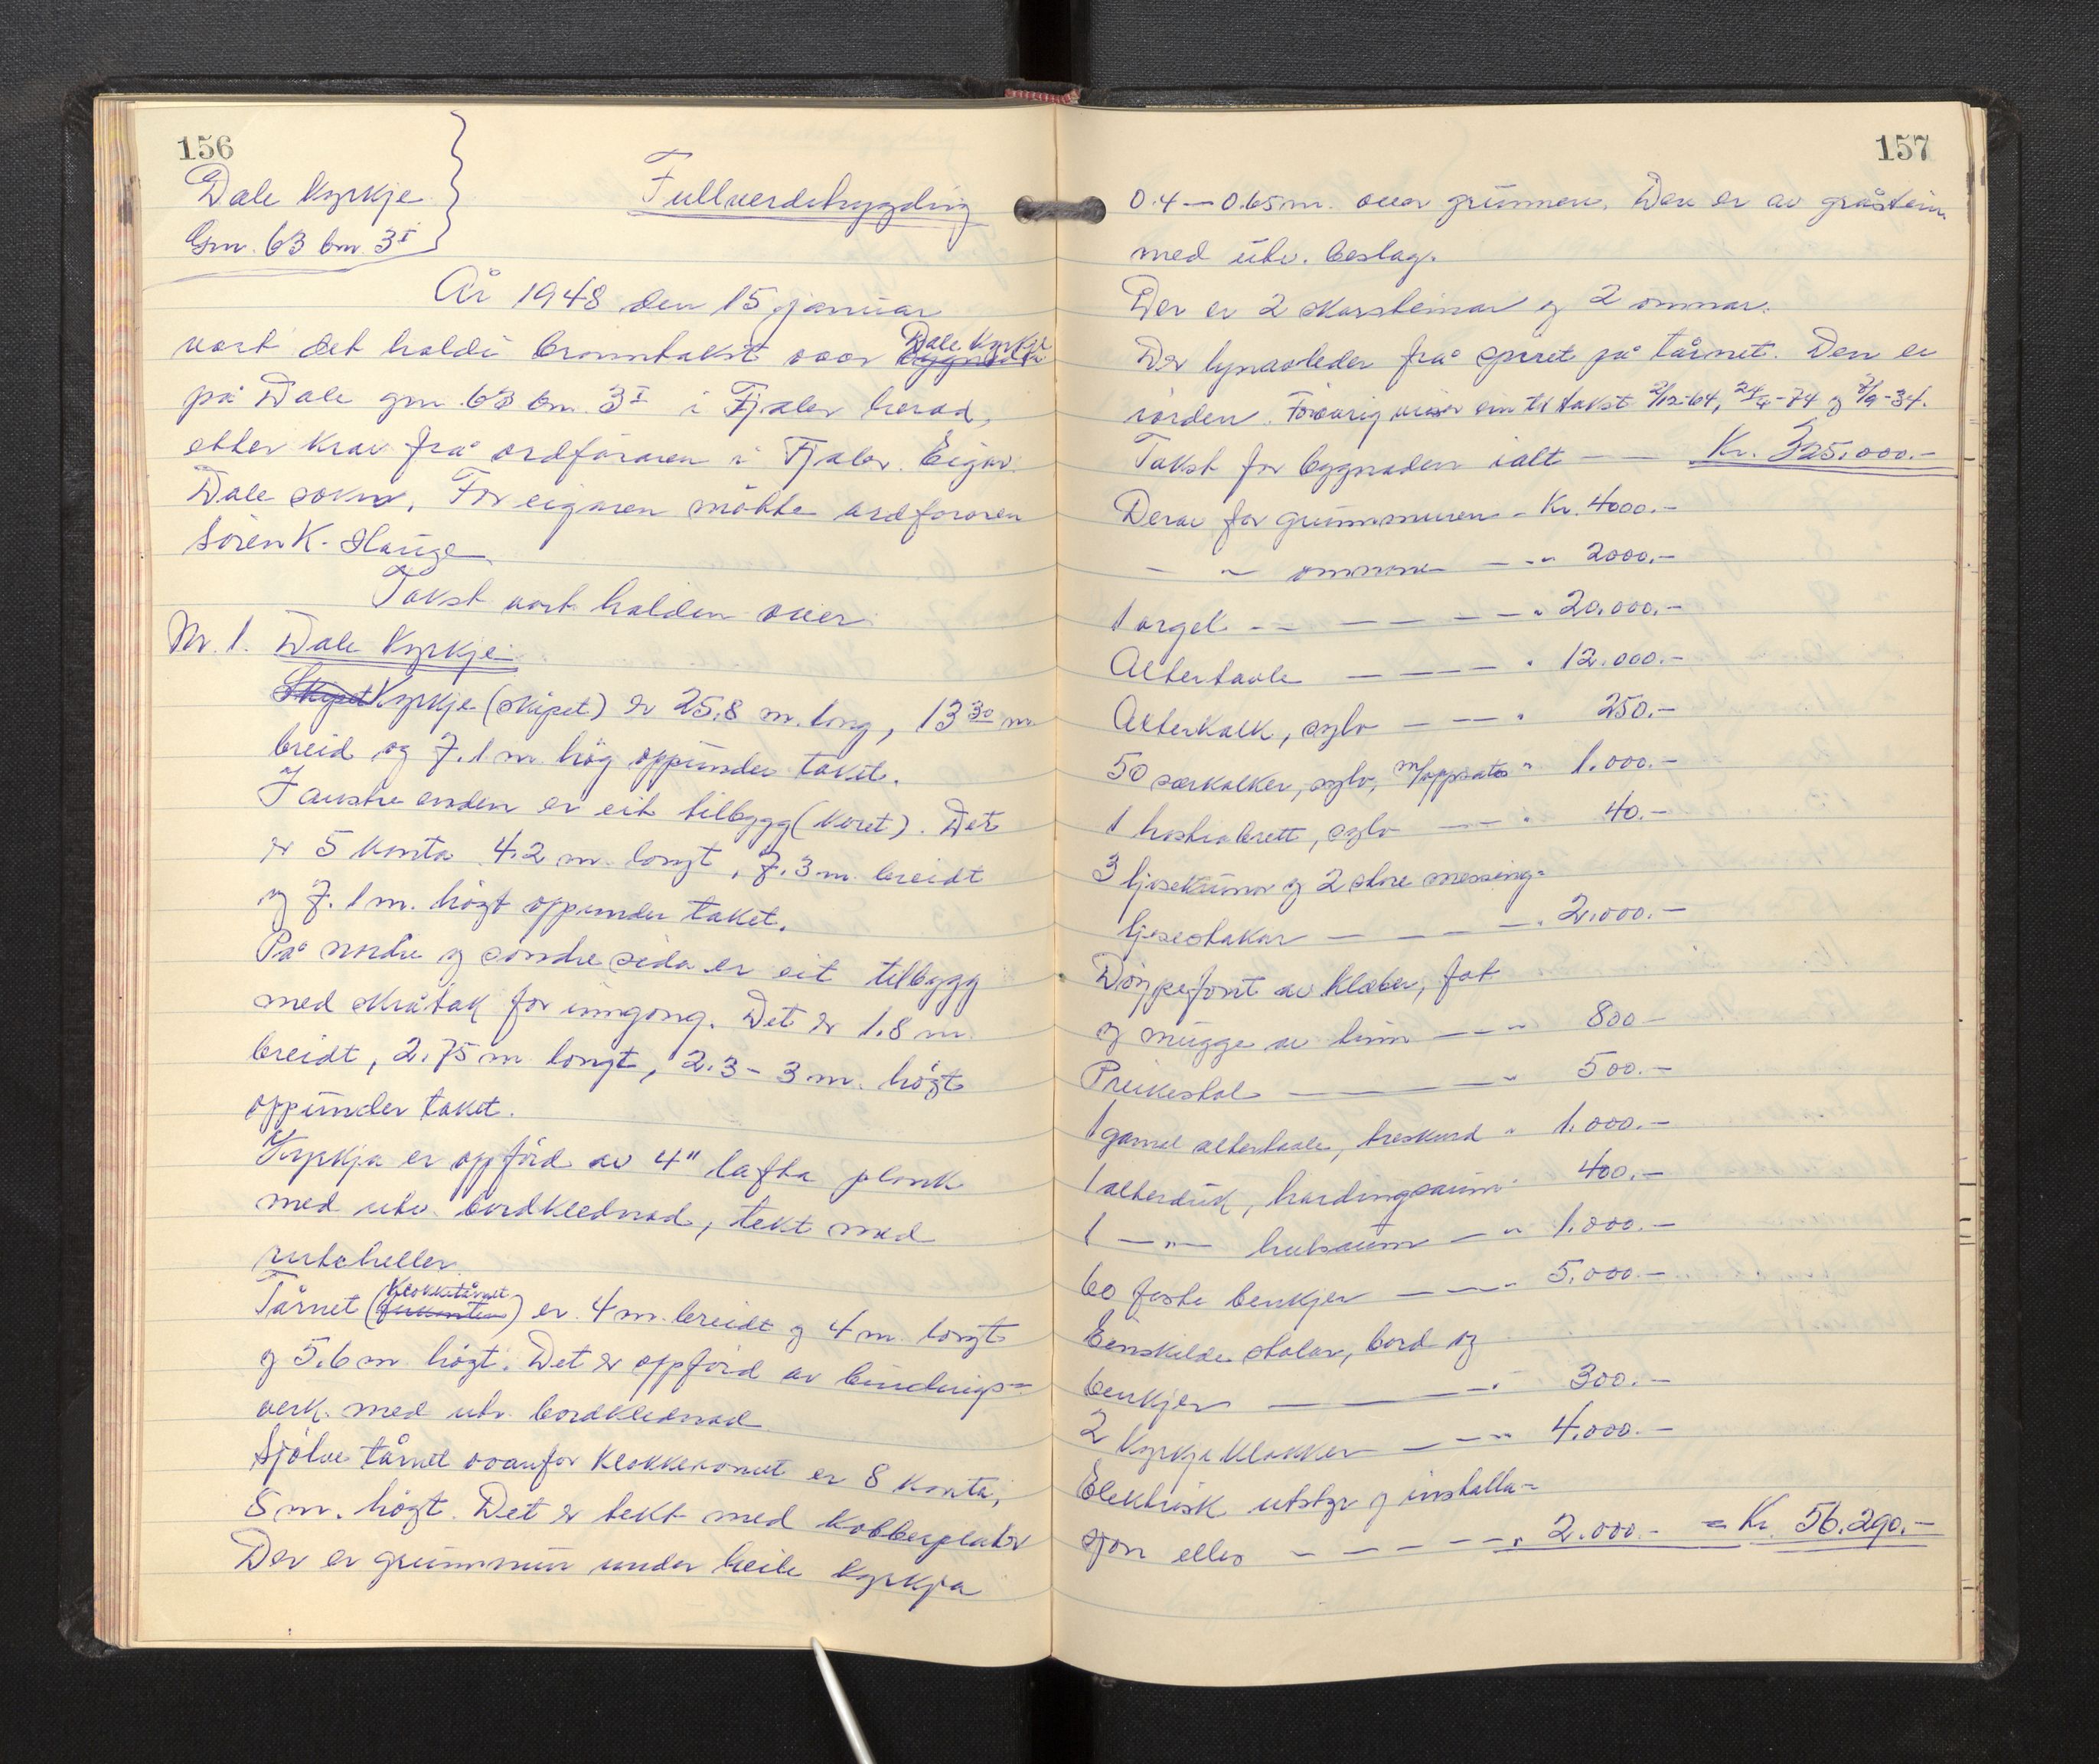 156
Dale Kyrkje
Gm. 63 bm. 3 I
Fullverdebygding
År 1948 den 15 januar
vart det haldi branntakst over Dale Kyrkje
på Dale gm. 63 bm. 3 I i Fjaler herad,
etter krav frå ordføraren i Fjaler. Eigar:
Dale sokn. For eigaren møtte ordføraren
Sören K. Hauge.
Takst vart halden over:
Nr. 1. Dale Kyrkje
Skipet Kyrkje (skipet) er 25.8 m. lang, 13 30 m
breid og 7.1 m. høg oppunder taket.
I austre enden er eit tilbygg (koret). Det
er 5 kanta 4.2 m. langt, 7.3 m. breidt
og 7.1 m. högt oppunder taket.
På nordre og søndre sida er eit tilbygg
med skråtak for inngang. Det er 1.8 m.
breidt, 2.75 m langt, 2.3 - 3 m. högt
oppunder taket.
Kyrkja er oppförd av 4" lafta plank
med utv. bordklednad, tekt med
ruteheller.
Tårnet (Klokketårnet) er 4 m. breidt og 4 m. langt
og 5.6 m högt. Det er oppförd av bindings=
verk med utv. bordklednad
Sjölve tårnet ovanfor klokkeromet er 8 kanta,
8 m. högt. Det er tekt med kobberplater
Der er grunnmur under heile kyrkja
157
0.4 - 0.65 m. over grunnen. Den er av gråstein
med utv. beslag.
Der er 2 skorsteinar og 2 omnar.
Der lynavleder frå spiret på tårnet. Den er
i orden. Forövrig viser ein til takst 2/12-64, 24/4-74 og 7/9-34.
Takst for bygnaden ialt — — Kr. 325.000.-
Derav for grunnmuren - Kr. 4000.-
- " - omnane - - " 2000.-
1 orgel - - - - - - " 20.000.-
Altertavle - - - " 12.000.-
Alterkalk, sylv - - - " 250.-
50 særkalker, sylv, m/oppsats " 1.000.-
1 hostiebrett, sylv - - " 40.-
3 ljosekruner og 2 store messing=
ljosestakar - - - - - " 2.000.-
Døypefont av kleber, fat
og mugge av tinn - - - " 800-
Preikestol - - - " 500.-
1 gamel altertavle, treskurd " 1.000.-
1 alterduk, hardingsaum " 400.-
1 - " - hulsaum - " 1.000.-
60 faste benkjer - - - " 5.000.-
Einskilde stolar, bord og
benkjer - - - - " 300.-
2 Kyrkjeklokker - - - " 4.000.-
Elektrisk utstyr og installa=
sjon elles - - - - - " 2.000.- = Kr. 56.290.-